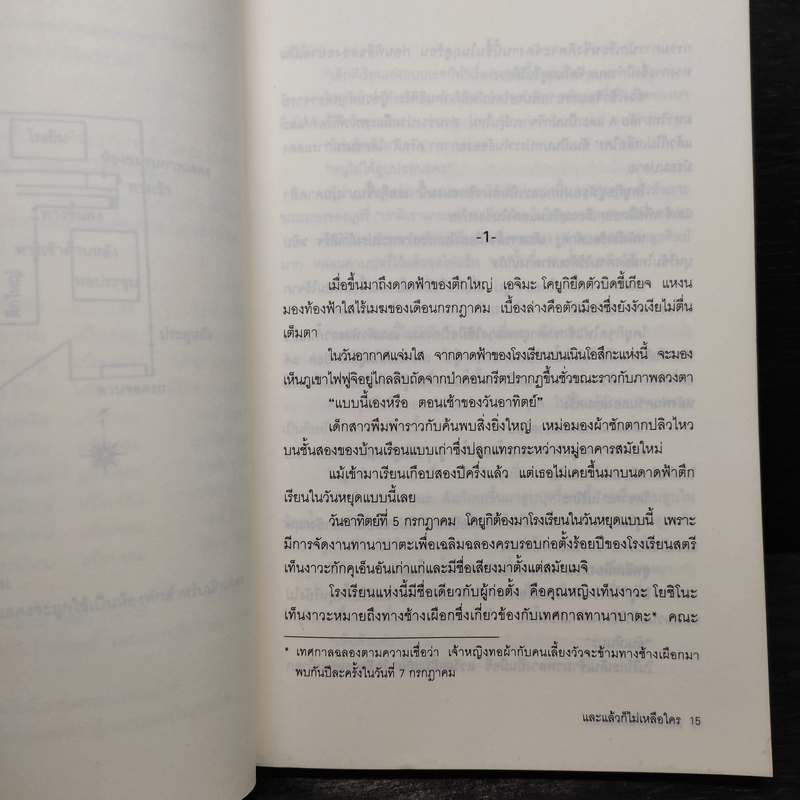 -1-
เมื่อขึ้นมาถึงดาดฟ้าของตึกใหญ่ เอจิมะ โคยูกิยืดตัวบิดขี้เกียจ แหงน
มองท้องฟ้าใสไร้เมฆของเดือนกรกฎาคม เบื้องล่างคือตัวเมืองซึ่งยังงัวเงียไม่ตื่น
เต็มตา
ในวันอากาศแจ่มใส จากดาดฟ้าของโรงเรียนบนเนินโอสึกะแห่งนี้ จะมอง
เห็นภูเขาไฟฟูจิอยู่ไกลลิบถัดจากป่าคอนกรีตปรากฏขึ้นชั่วขณะราวกับภาพลวงตา
“แบบนี้เองหรือ ตอนเช้าของวันอาทิตย์”
เด็กสาวพึมพำราวกับค้นพบสิ่งยิ่งใหญ่ เหม่อมองผ้าซักตากปลิวไหว
บนชั้นสองของบ้านเรือนแบบเก่าซึ่งปลูกแทรกระหว่างหมู่อาคารสมัยใหม่
แม้เข้ามาเรียนเกือบสองปีครึ่งแล้ว แต่เธอไม่เคยขึ้นมาบนดาดฟ้าตึก
เรียนในวันหยุดแบบนี้เลย
วันอาทิตย์ที่ 5 กรกฎาคม โคยูกิต้องมาโรงเรียนในวันหยุดแบบนี้ เพราะ
มีการจัดงานทานาบาตะเพื่อเฉลิมฉลองครบรอบก่อตั้งร้อยปีของโรงเรียนสตรี
เท็นงาวะกักคุเอ็นอันเก่าแก่และมีชื่อเสียงมาตั้งแต่สมัยเมจิ
โรงเรียนแห่งนี้มีชื่อเดียวกับผู้ก่อตั้ง คือคุณหญิงเท็นงาวะ โยชิโนะ
เท็นงาวะหมายถึงทางช้างเผือกซึ่งเกี่ยวข้องกับเทศกาลทานาบาตะ* คณะ
* เทศกาลฉลองตามความเชื่อว่า เจ้าหญิงทอผ้ากับคนเลี้ยงวัวจะข้ามทางช้างเผือกมา
พบกันปีละครั้งในวันที่ 7 กรกฎาคม
และแล้วก็ไม่เหลือใคร 15